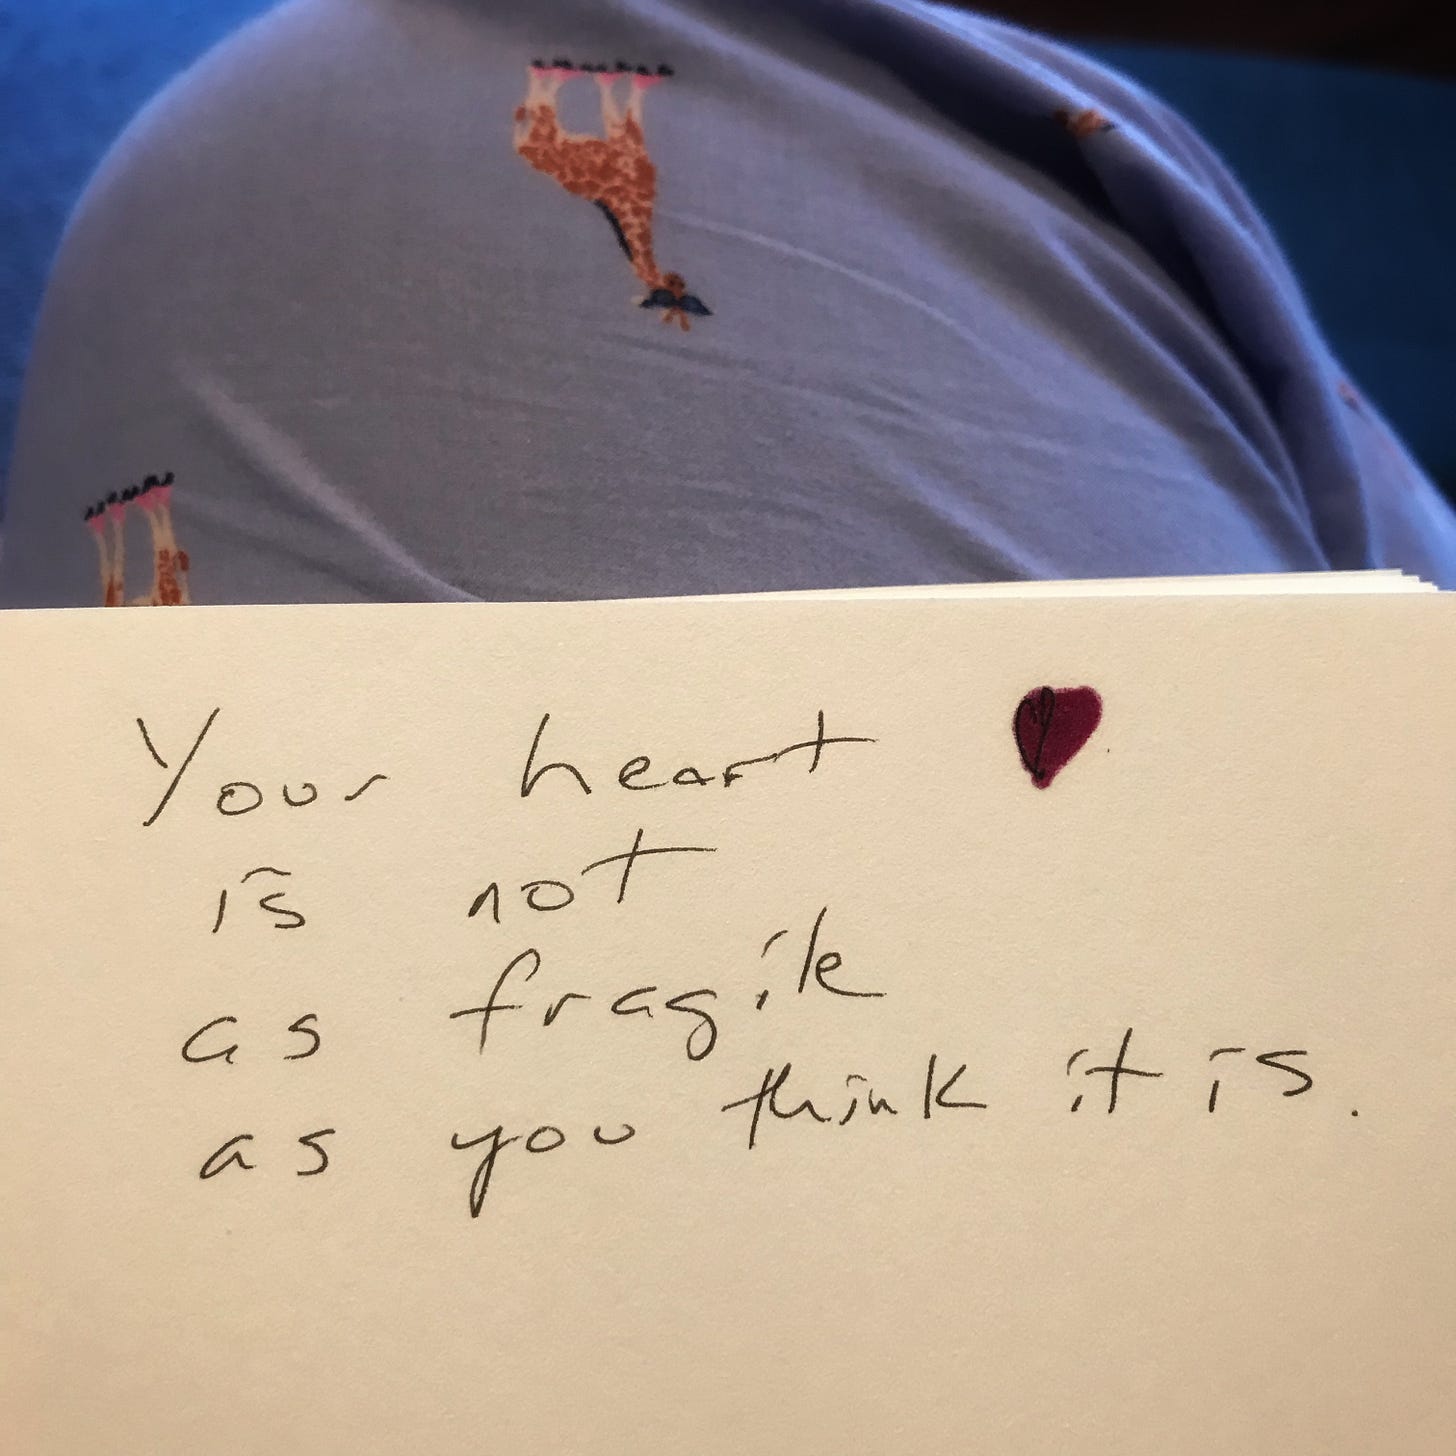 Your heart
is not
as fragile
as you think it is.